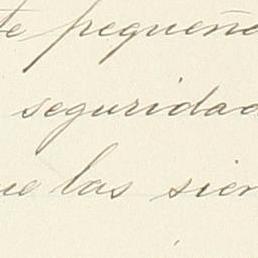 te pequeña
seguridad
ue las sier